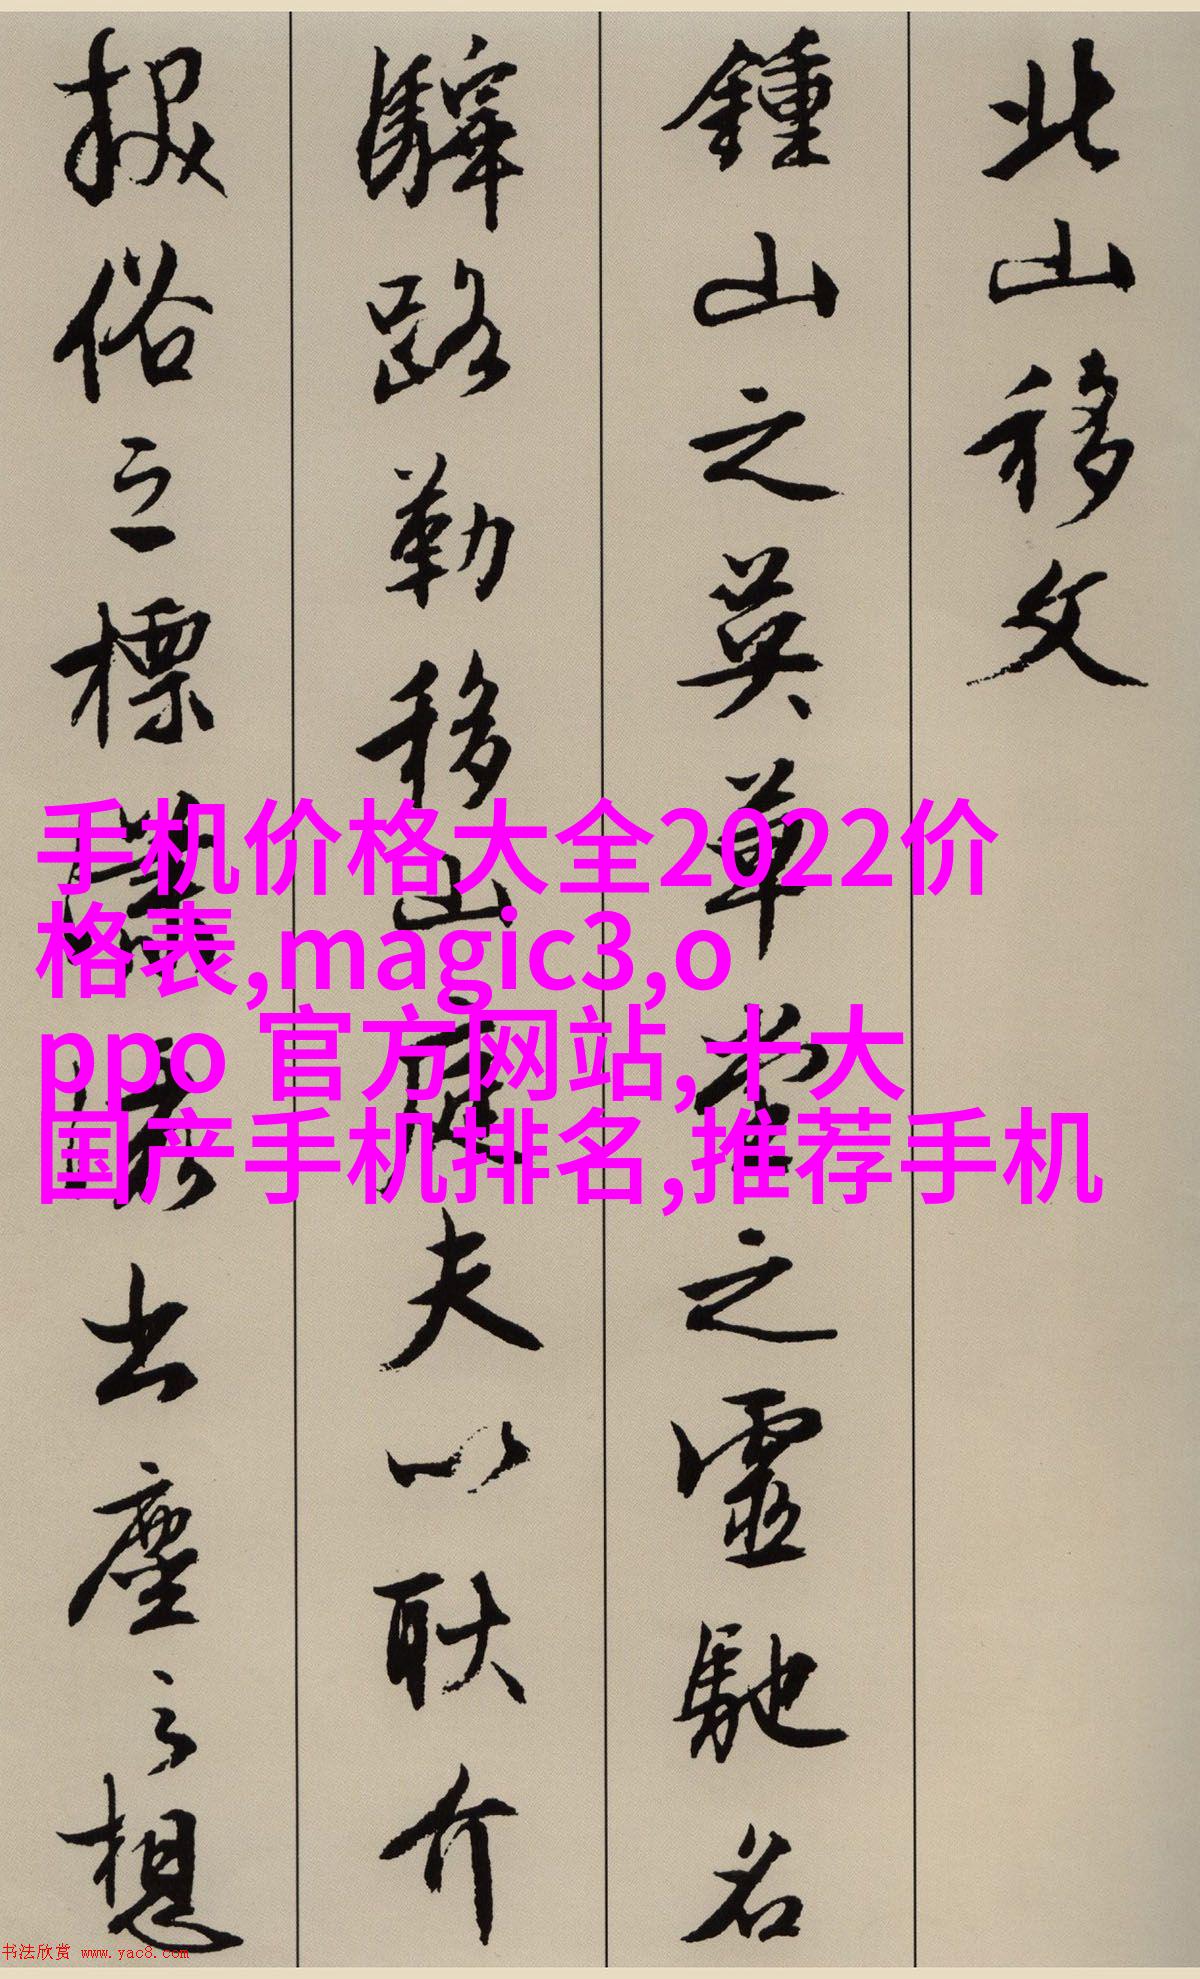 北山移文
鍾山之英草堂之靈馳名
驛路勒移山庭夫以耿介
拔俗之標出塵之想
手机价格大全2022价
格表,magic3,o
ppo 官方网站,十大
国产手机排名,推荐手机
书法欣赏 www.yac8.com